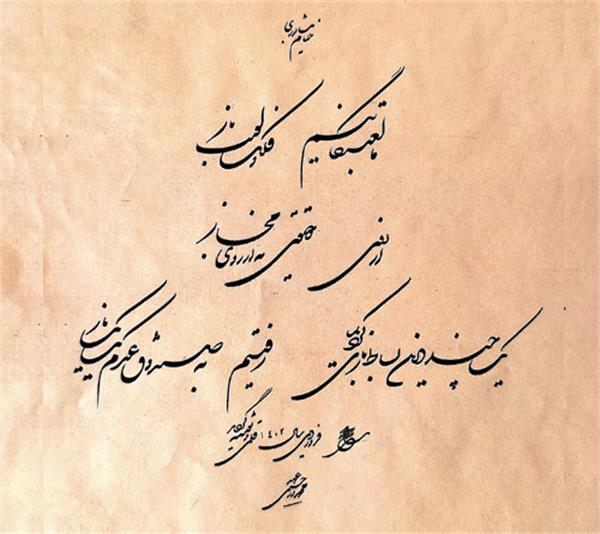 خیام نیشابوری
ما لعبتکانیم و فلک لعبت باز
از روی حقیقتی نه از روی مجاز
یک چند در این بساط بازی کردیم رفتیم به صندوق عدم یک یک باز
فروردین سال ۱۴۰۲